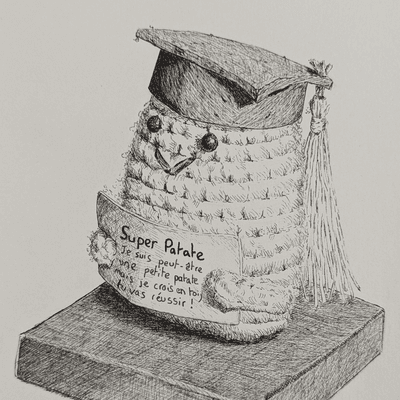 Super Patate
Je suis peut-être
une petite patate
mais je crois en toi,
tu vas réussir !